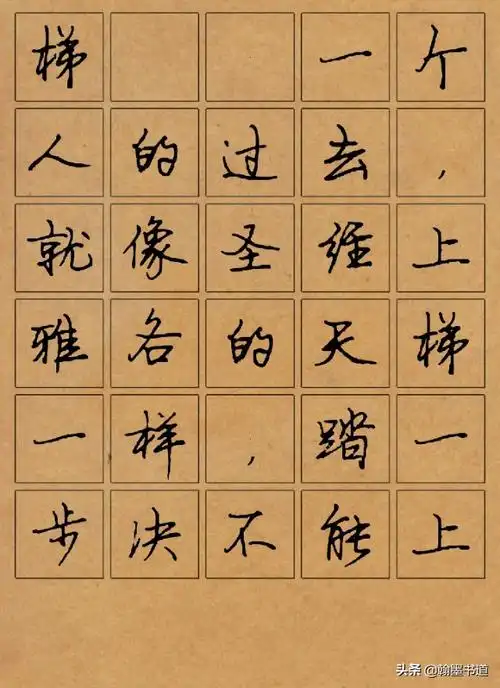 梯 一个
人的过去，
就像圣经上
雅各的天梯
一样，踏一
步决不能上
头条 @翰墨书道